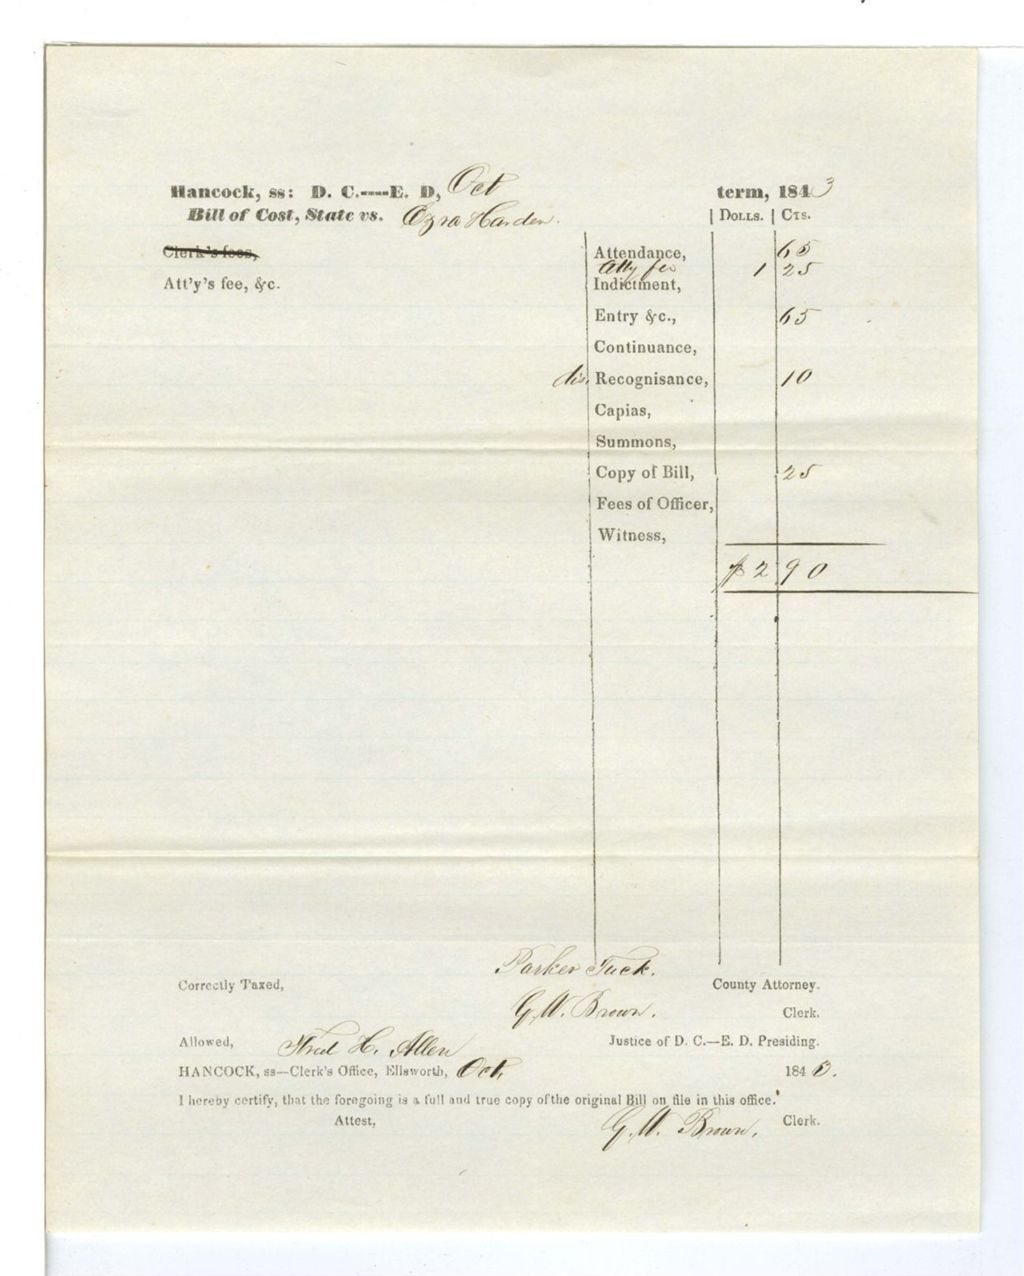 Hancock, ss: D. C.----E. D, Oct term, 1843
Bill of Cost, State vs. Ezra Harden. | Dolls. | Cts.
Clerk's fees, Attendance, 65
Atty fee 1 25
Att'y's fee, &c. Indictment,
Entry &c., 65
Continuance,
dis. Recognisance, 10
Capias,
Summons,
Copy of Bill, 25
Fees of Officer,
Witness,
$ 2 90
Parker Tuck.
Correctly Taxed, County Attorney.
G. W. Brown. Clerk.
Allowed, Fred H. Allen Justice of D. C.—E. D. Presiding.
HANCOCK, ss—Clerk's Office, Ellsworth, Oct, 1843.
I hereby certify, that the foregoing is a full and true copy of the original Bill on file in this office.
Attest, G. W. Brown, Clerk.